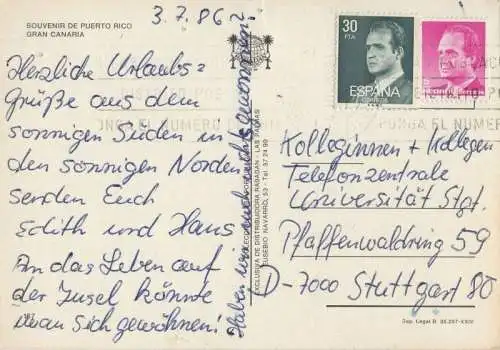 SOUVENIR DE PUERTO RICO
GRAN CANARIA
3.7.86
Herzliche Urlaubs=
grüße aus dem
sonnigen Süden in
den sonnigen Norden
senden Euch
Edith und Hans
An das Leben auf
der Insel könnte
man sich gewöhnen!
Haben uns
EXCLUSIVA DE DISTRIBUIDORA RABASAN - LAS PALMAS
EUSEBIO NAVARRO, 53 - Tel.
30
PTA
ESPAÑA
PONGA EL NUMERO
Kolleginnen + Kollegen
Telefonzentrale
Universität Stgt.
Pfaffenwaldring 59
D-7000 Stuttgart 80
Dep. Legal B.